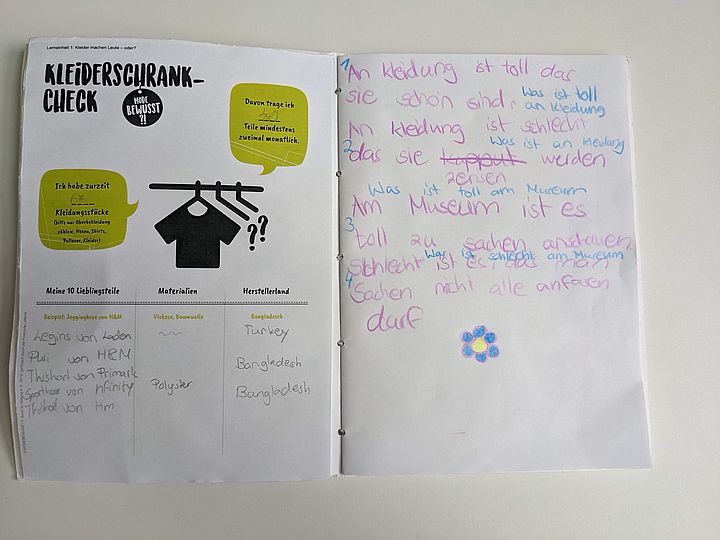 Lerneinheit 1: Kleider machen Leute – oder?
KLEIDERSCHRANK-
CHECK
MODE
BEWUSST
?!
Davon trage ich
Teile mindestens
zweimal monatlich.
Ich habe zurzeit
Kleidungsstücke
(bitte nur Oberbekleidung
zählen: Hosen, Shirts,
Pullover, Kleider)
??
Meine 10 Lieblingsteile Materialien Herstellerland
Beispiel: Jogginghose von H&M Viskose, Baumwolle Bangladesch
Legins von Laden Turkey
Pulli von H&M Bangladesh
Thishort von Primark
Sporthose von nfinity Polyster Bangladesh
Thishort von Hm
1 An kleidung ist toll das
sie schön sind. Was ist toll
an kleidung
An kleidung ist schlecht
Was ist an kleidung
2 das sie kapput werden
zerisen
Was ist toll am Mureum
Am Mureum ist es
3
toll zu sachen anschauen.
Was ist schlecht am Mureum
Schlecht ist es, das man
4
Sachen nicht alle anfasen
darf